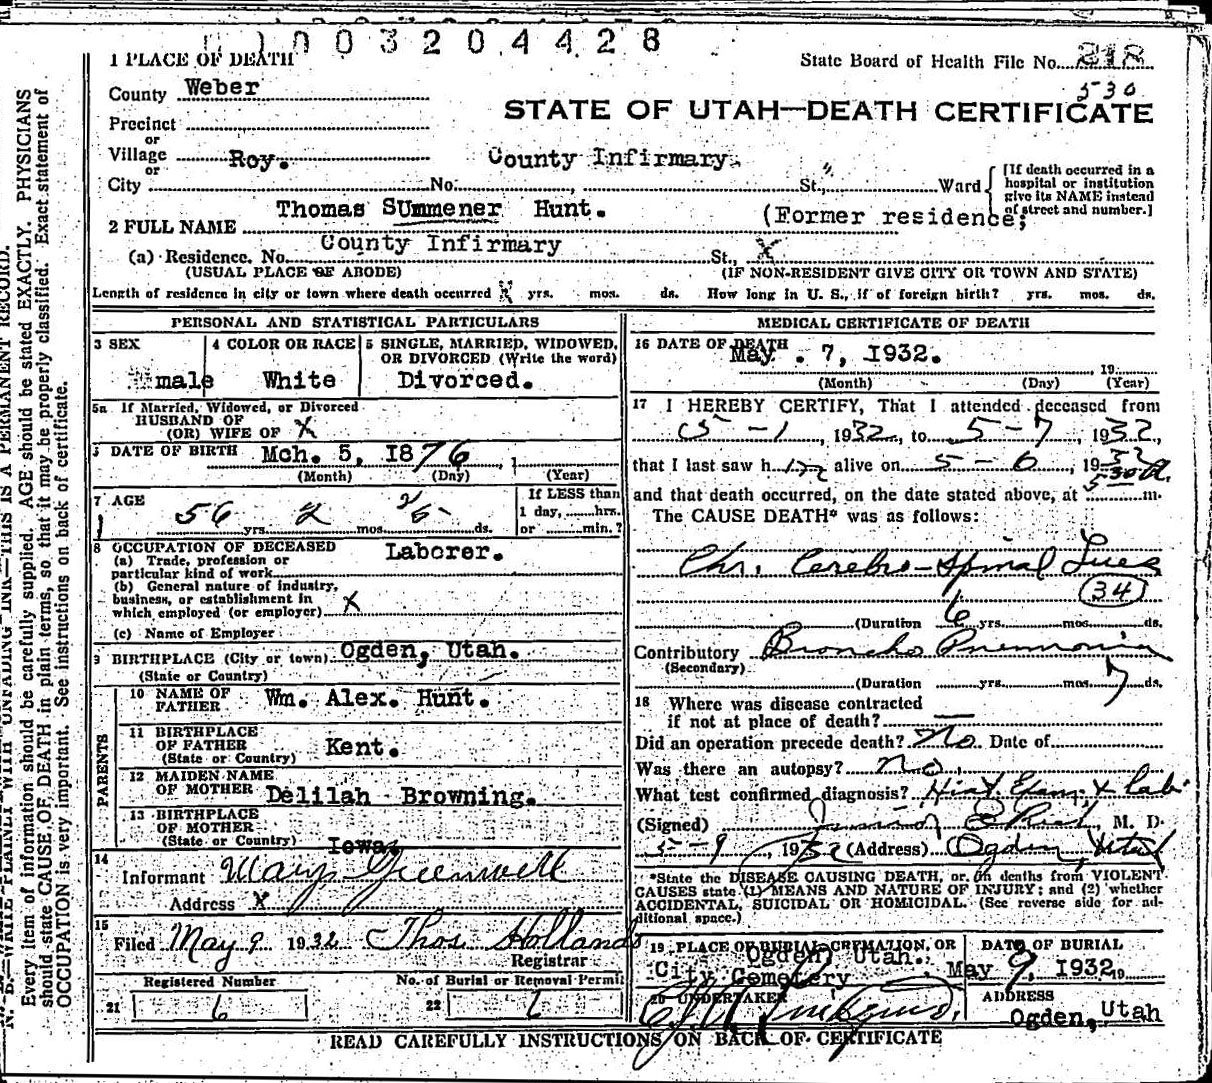 0 0 3 2 0 4 4 2 8
1 PLACE OF DEATH
State Board of Health File No. 218
530
County Weber
STATE OF UTAH—DEATH CERTIFICATE
Precinct
or
Village Roy. County Infirmary.
or
City No. St., Ward
[If death occurred in a hospital or institution give its NAME instead of street and number.]
2 FULL NAME Thomas SUmmener Hunt. (Former residence;
(a) Residence. No. County Infirmary St., X
(USUAL PLACE OF ABODE) (IF NON-RESIDENT GIVE CITY OR TOWN AND STATE)
Length of residence in city or town where death occurred X yrs. mos. ds. How long in U. S., if of foreign birth? yrs. mos. ds.
PERSONAL AND STATISTICAL PARTICULARS
3 SEX male
4 COLOR OR RACE White
5 SINGLE, MARRIED, WIDOWED, OR DIVORCED (Write the word) Divorced.
5a If Married, Widowed, or Divorced
HUSBAND OF
(OR) WIFE OF X
DATE OF BIRTH Mch. 5, 1876
(Month) (Day) (Year)
7 AGE 56 yrs. 2 mos. ds.
If LESS than 1 day, hrs. or min.?
8 OCCUPATION OF DECEASED Laborer.
(a) Trade, profession or particular kind of work
(b) General nature of industry, business, or establishment in which employed (or employer) X
(c) Name of Employer
9 BIRTHPLACE (City or town) Ogden, Utah.
(State or Country)
PARENTS
10 NAME OF FATHER Wm. Alex. Hunt.
11 BIRTHPLACE OF FATHER (State or Country) Kent.
12 MAIDEN NAME OF MOTHER Delilah Browning.
13 BIRTHPLACE OF MOTHER (State or Country) Iowa.
14
Informant Mary Greenwell
Address X
15
Filed May 9 1932 Thos Hollands
Registrar
Registered Number No. of Burial or Removal Permit
21 6 22 1
MEDICAL CERTIFICATE OF DEATH
16 DATE OF DEATH May. 7, 1932.
19
(Month) (Day) (Year)
17 I HEREBY CERTIFY, That I attended deceased from
5-1, 1932, to 5-7, 1932,
that I last saw him alive on 5-6, 1932
and that death occurred, on the date stated above, at 530 a. m.
The CAUSE DEATH* was as follows:
Chr. Cerebro-Spinal Lues
34
(Duration 6 yrs. mos. ds.
Contributory Broncho Pneumonia
(Secondary)
(Duration yrs. mos. 7 ds.
18 Where was disease contracted
if not at place of death? —
Did an operation precede death? No. Date of
Was there an autopsy? no.
What test confirmed diagnosis? Hist. Exam. & Lab
(Signed) Junior E Rich, M. D.
5-9, 1932 (Address) Ogden, Utah
*State the DISEASE CAUSING DEATH, or in deaths from VIOLENT
CAUSES state (1) MEANS AND NATURE OF INJURY; and (2) whether
ACCIDENTAL, SUICIDAL OR HOMICIDAL. (See reverse side for additional space.)
19 PLACE OF BURIAL, CREMATION, OR
Ogden, Utah.
City Cemetery
DATE OF BURIAL
May 9, 1932 19
20 UNDERTAKER
ADDRESS
Ogden, Utah
READ CAREFULLY INSTRUCTIONS ON BACK OF CERTIFICATE
N. B.—WRITE PLAINLY WITH UNFADING INK—THIS IS A PERMANENT RECORD.
Every item of information should be carefully supplied. AGE should be stated EXACTLY. PHYSICIANS
should state CAUSE OF DEATH in plain terms, so that it may be properly classified. Exact statement of
OCCUPATION is very important. See instructions on back of certificate.